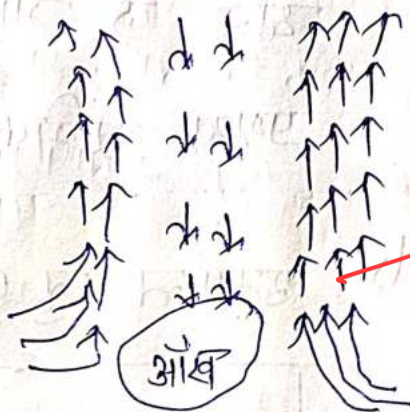 आँख